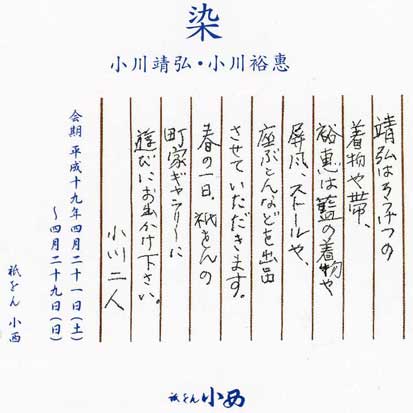 染
小川靖弘・小川裕惠
靖弘はろうけつの
着物や帯、
裕惠は藍の着物や
屏風、ストールや、
座ぶとんなどを出品
させていただきます。
春の一日、祇をんの
町家ギャラリーに
遊びにお出かけ下さい。
小川二人
会期 平成十九年四月二十一日(土)
〜四月二十九日(日)
祇をん 小西
祇をん 小西